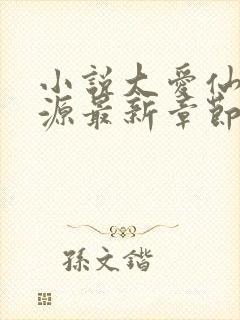 小説太愛仙
源最新章節
孫文鍇